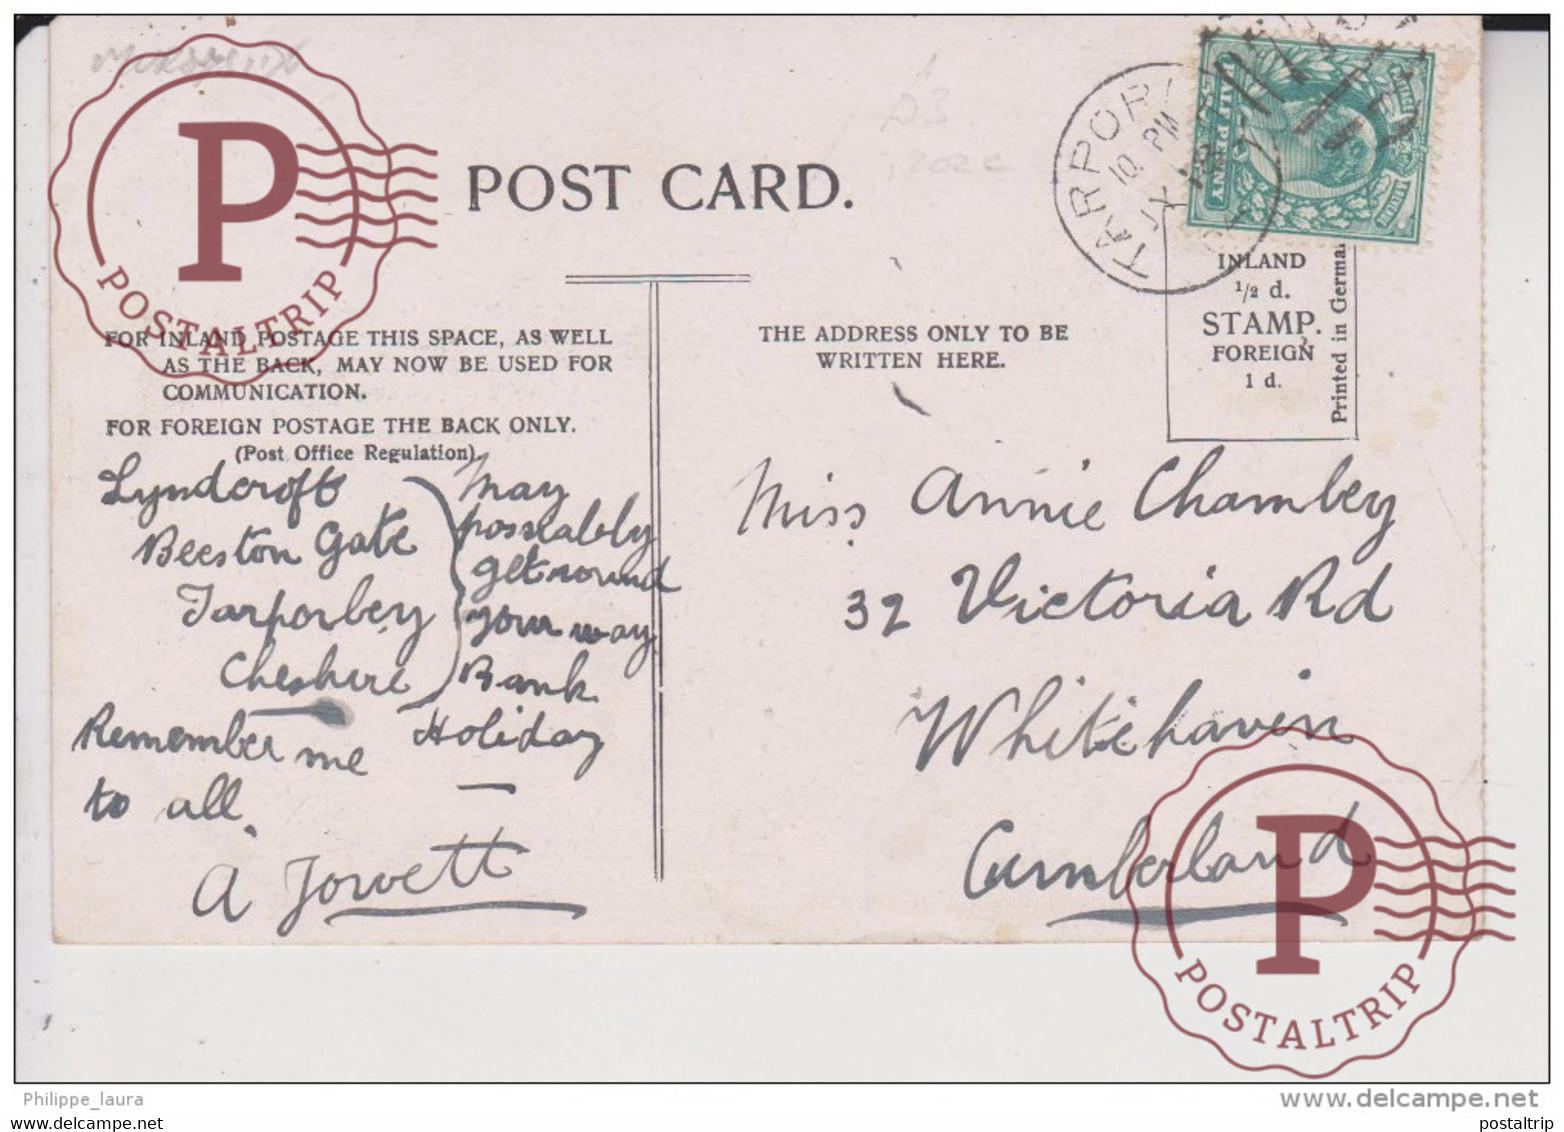 POST CARD.
FOR INLAND POSTAGE THIS SPACE, AS WELL
AS THE BACK, MAY NOW BE USED FOR
COMMUNICATION.
FOR FOREIGN POSTAGE THE BACK ONLY.
(Post Office Regulation)
THE ADDRESS ONLY TO BE
WRITTEN HERE.
INLAND
1/2 d.
STAMP.
FOREIGN
1 d.
Printed in
HALF PENNY
POSTAGE
REVENUE
10 PM
Lyndcroft
Beeston Gate
Tarporley
Cheshire
May
possably
get round
your way
Bank
Holiday
Remember me
to all.
A Jowett
Miss Annie Chambey
32 Victoria Rd
Whitehaven
Cumberland
P
POSTALTRIP
P
POSTALTRIP
Philippe_laura
www.delcampe.net
postaltrip